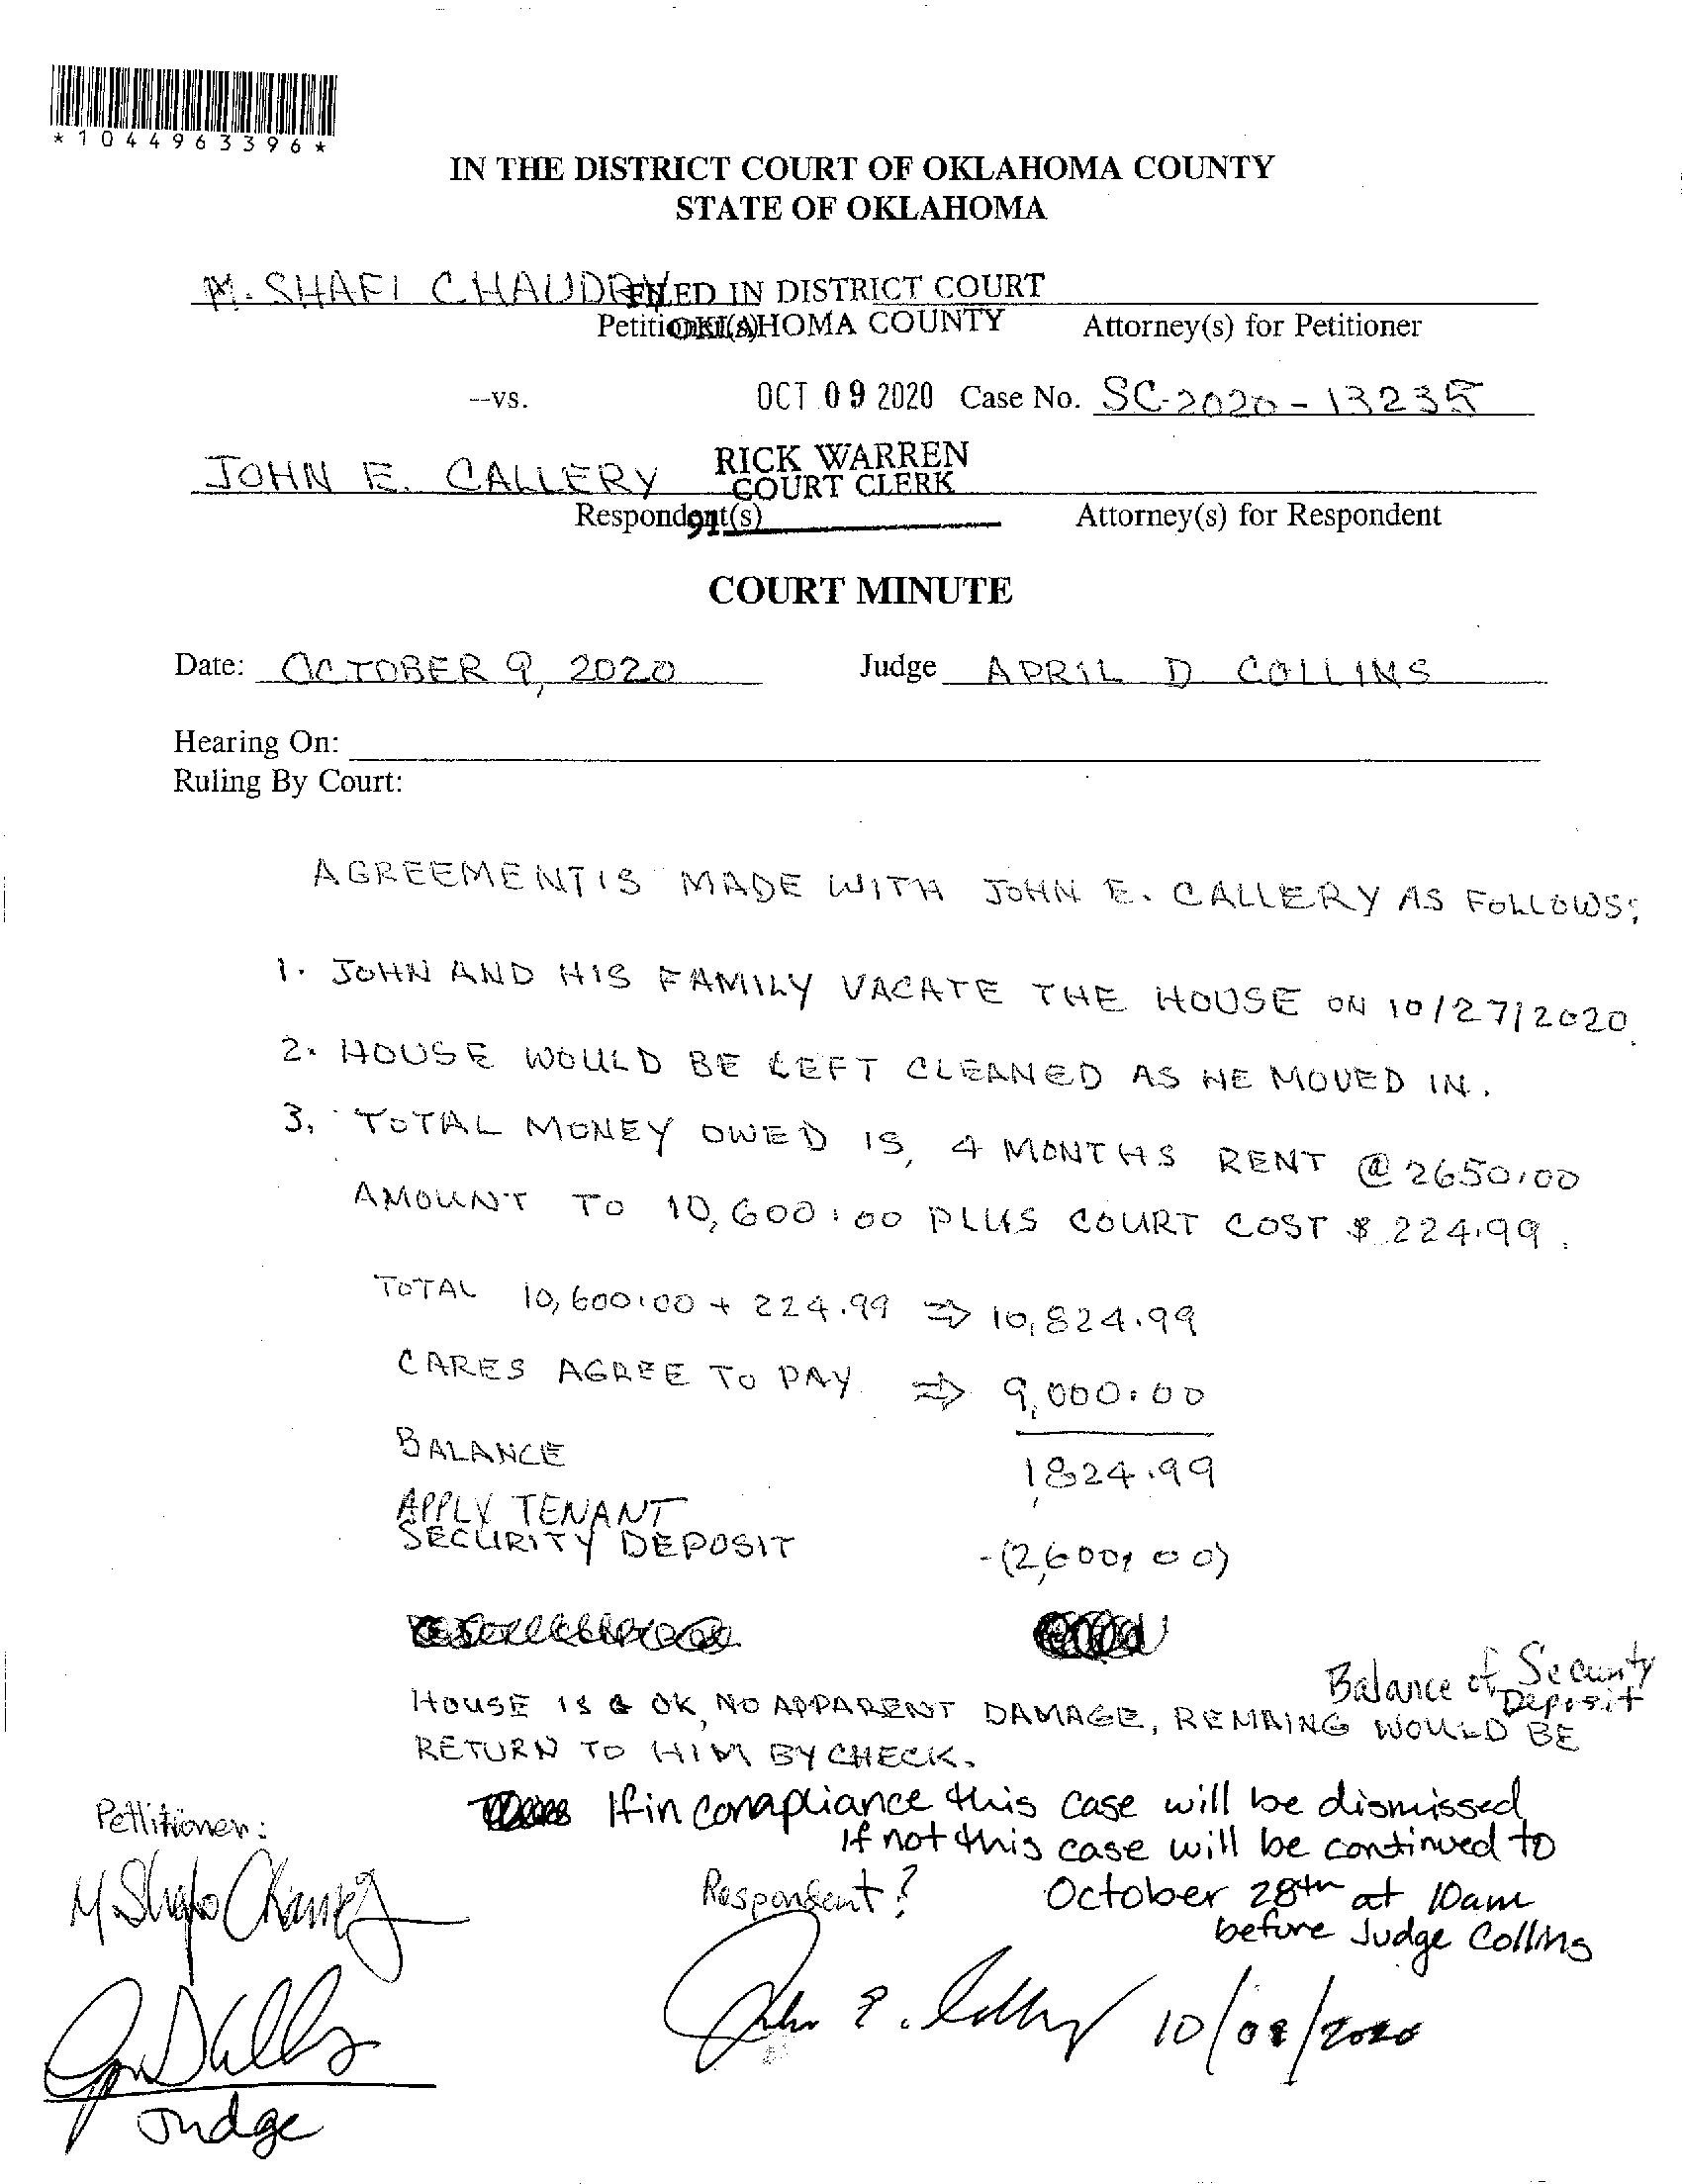 *1044963396*
IN THE DISTRICT COURT OF OKLAHOMA COUNTY
STATE OF OKLAHOMA
M. SHAFI CHAUDRY FILED IN DISTRICT COURT
Petitioner(s) OKLAHOMA COUNTY Attorney(s) for Petitioner
--vs. OCT 09 2020 Case No. SC-2020-13235
JOHN E. CALLERY RICK WARREN
COURT CLERK
Respondent(s) 91 Attorney(s) for Respondent
COURT MINUTE
Date: OCTOBER 9, 2020 Judge APRIL D COLLINS
Hearing On:
Ruling By Court:
AGREEMENT IS MADE WITH JOHN E. CALLERY AS FOLLOWS;
1. JOHN AND HIS FAMILY VACATE THE HOUSE ON 10/27/2020.
2. HOUSE WOULD BE LEFT CLEANED AS HE MOVED IN.
3. TOTAL MONEY OWED IS, 4 MONTHS RENT @ 2650.00
AMOUNT TO 10,600.00 PLUS COURT COST $ 224.99.
TOTAL 10,600.00 + 224.99 ⇒ 10,824.99
CARES AGREE TO PAY ⇒ 9,000.00
BALANCE 1,824.99
APPLY TENANT
SECURITY DEPOSIT -(2,600.00)
Balance of Security
Deposit
HOUSE IS OK, NO APPARENT DAMAGE, REMAING WOULD BE
RETURN TO HIM BY CHECK.
If in compliance this case will be dismissed
If not this case will be continued to
October 28th at 10am
before Judge Collins
Petitioner:
Respondent:
John E. Callery 10/09/2020
Judge